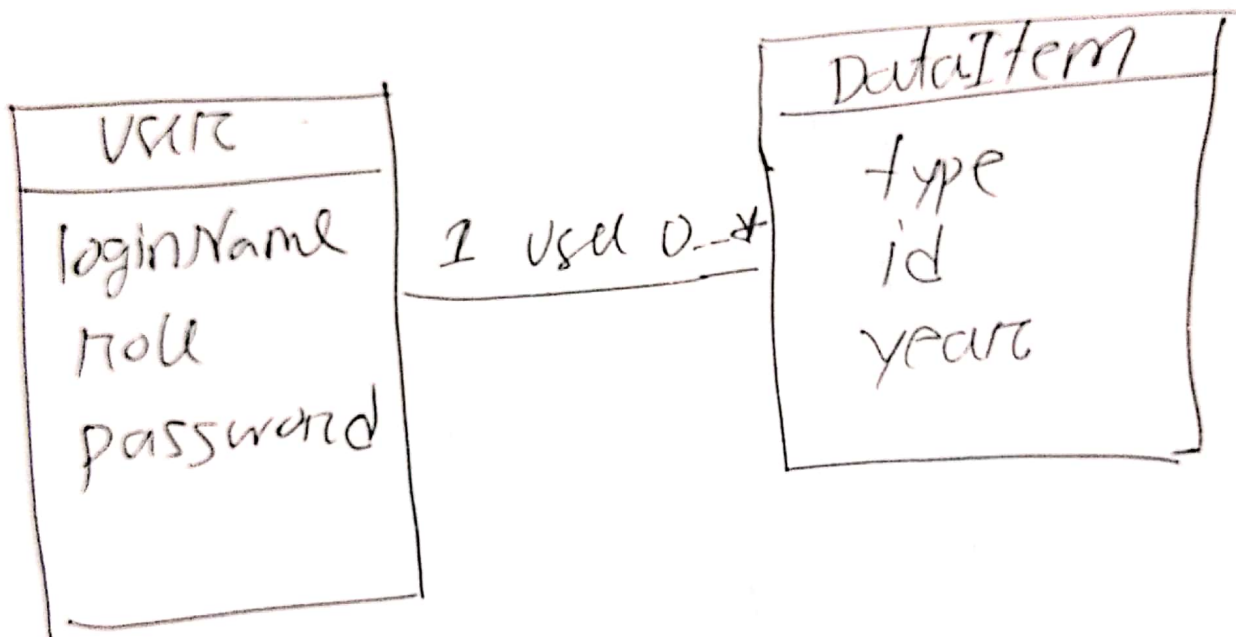 User
loginName
role
password
1 uses 0..*
DataItem
type
id
year